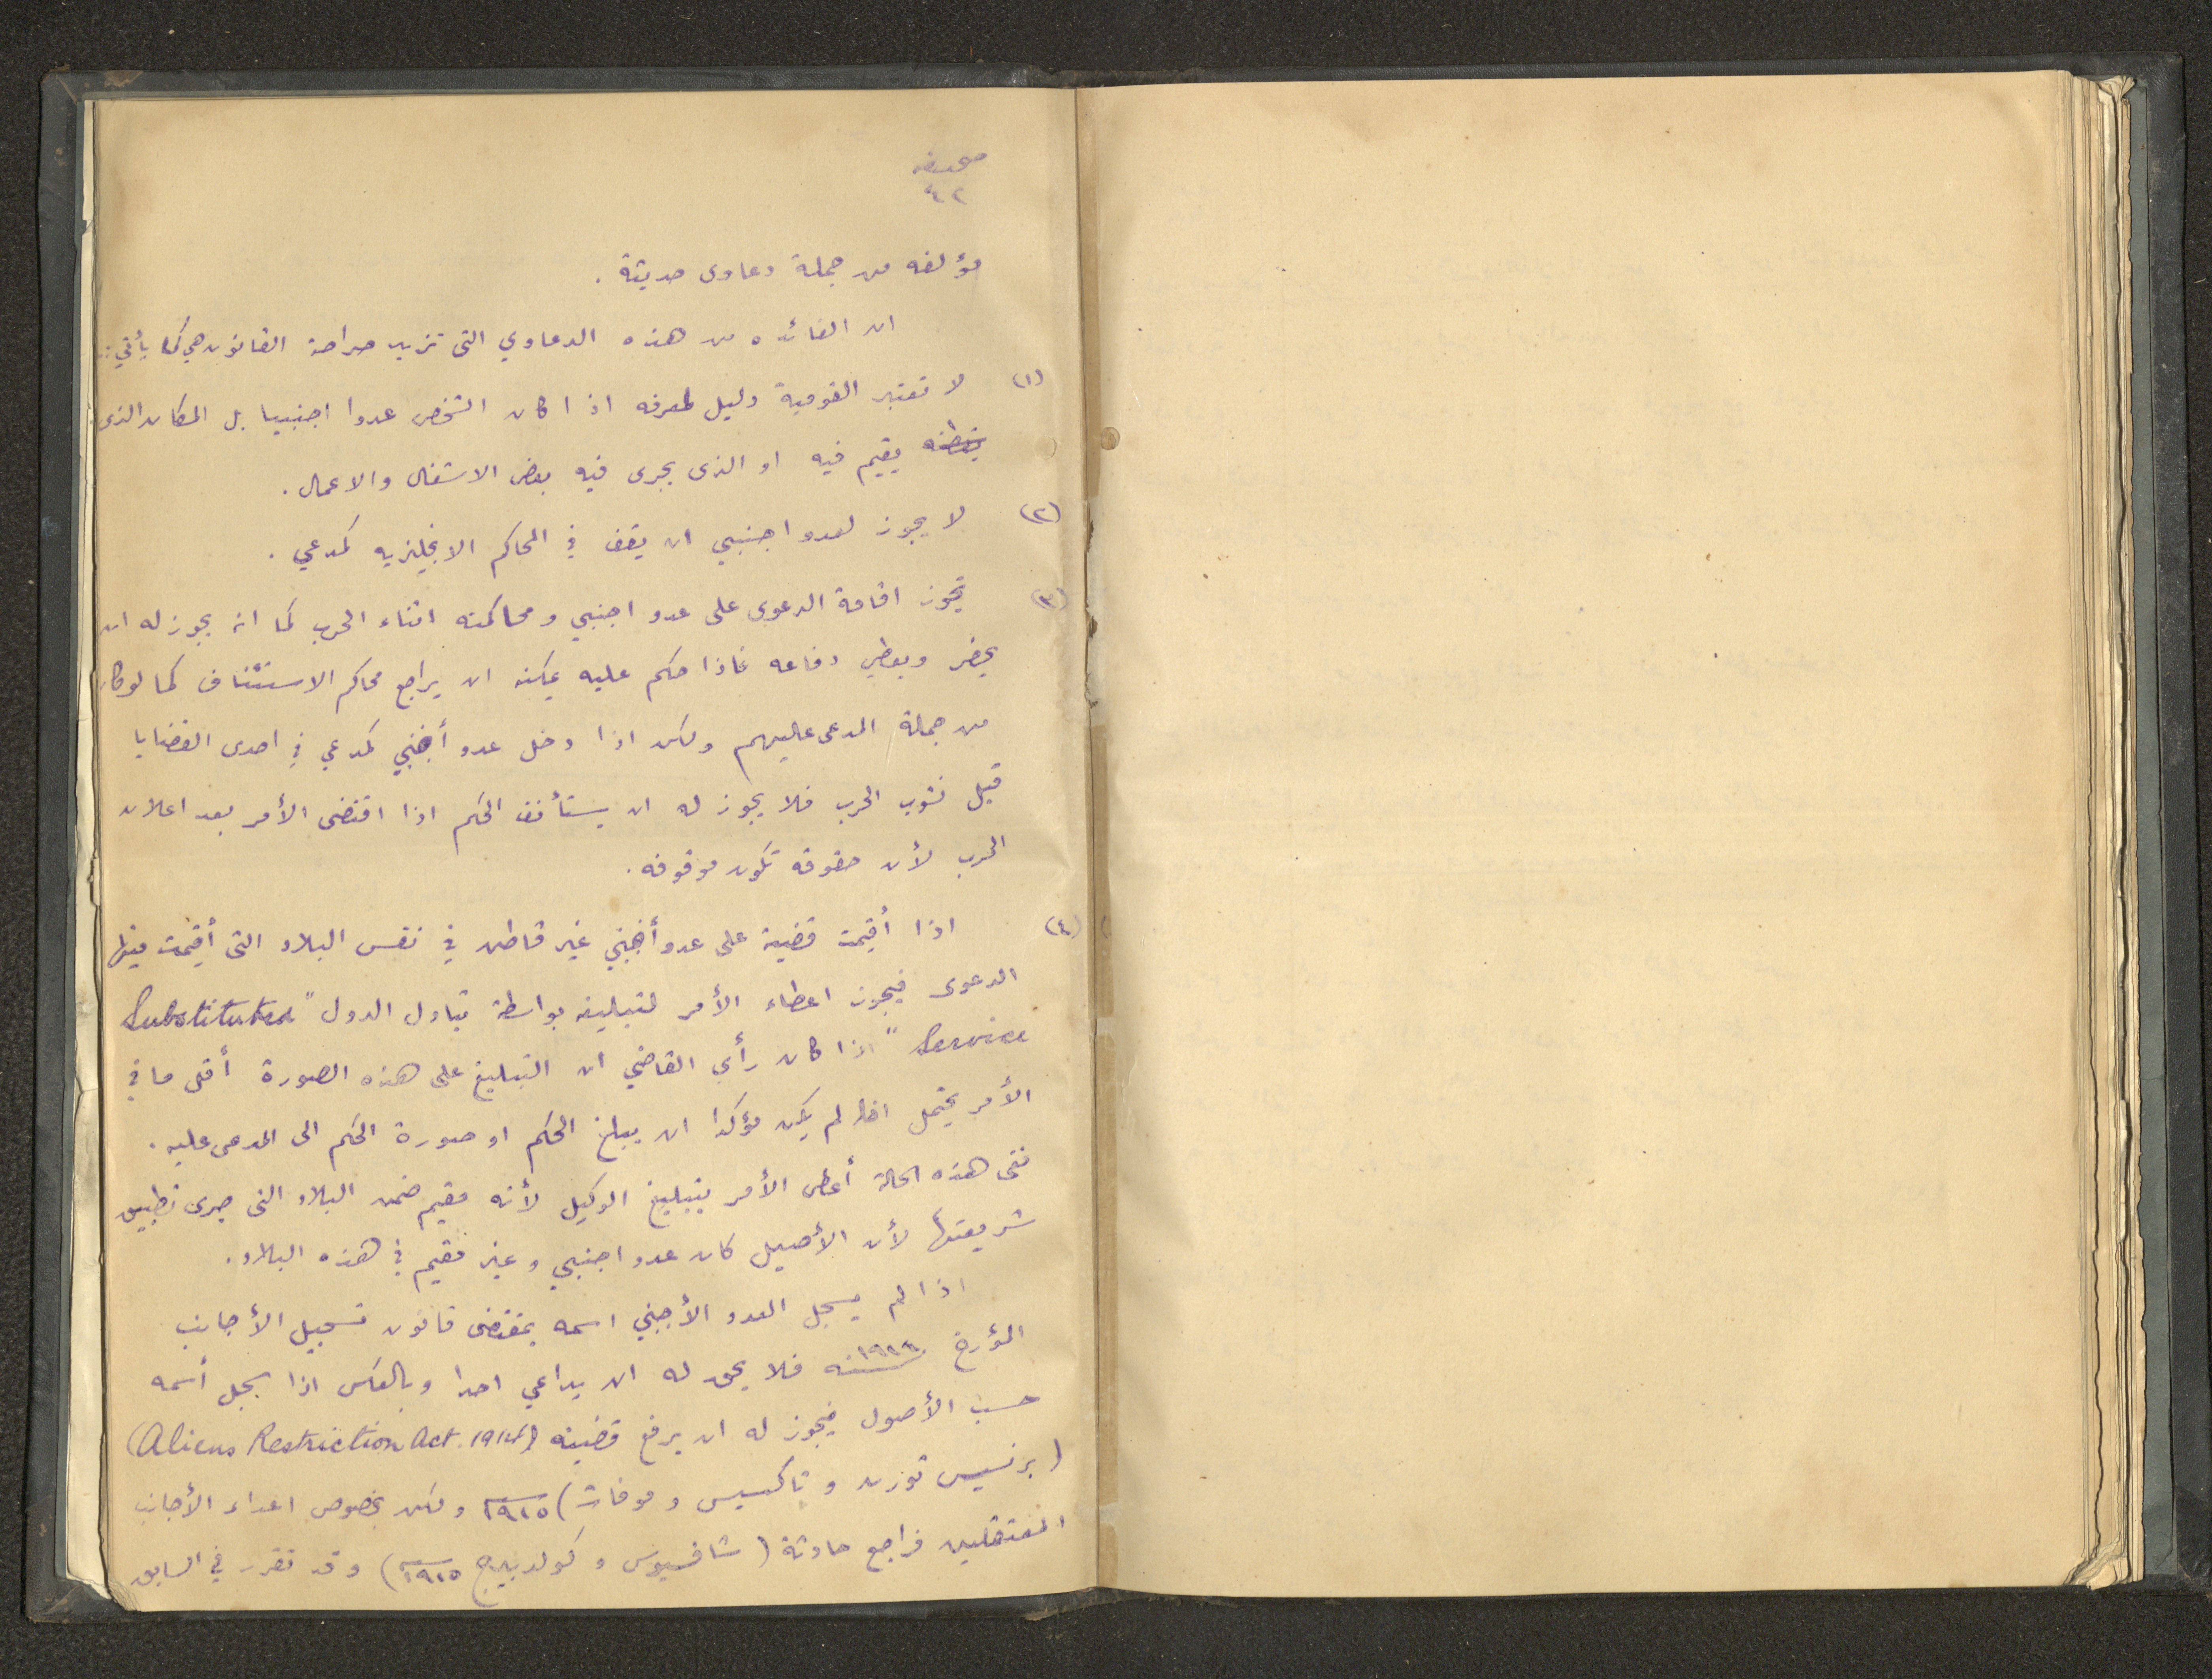 صحيفه
٤٢
مؤلفه من جملة دعاوى حديثة .
ان الفائده من هذه الدعاوي التى تزيد صراحة القانون هي كما يأتي :
(١) لا تعتبر القومية دليل لمعرفه اذا كان الشخص عدوا اجنبيا بل المكان الذى
يقيم فيه او الذى يجرى فيه بعض الاشغال والاعمال .
(٢) لا يجوز لعدو اجنبي ان يقف في المحاكم الانجليزيه كمدعي .
(٣) تجوز اقامة الدعوى على عدو اجنبي ومحاكمته اثناء الحرب كما انه يجوز له ان
يحضر ويعطي دفاعه فاذا حكم عليه يمكنه ان يراجع محاكم الاستئناف كما لو كان
من جملة المدعى عليهم ولكن اذا دخل عدو أجنبي كمدعي في احدى القضايا
قبل نشوب الحرب فلا يجوز له ان يستأنف الحكم اذا اقتضى الأمر بعد اعلان
الحرب لأن حقوقه تكون موقوفه .
(٤) اذا أقيمت قضية على عدو أجنبي غير قاطن في نفس البلاد التى أقيمت فيها
الدعوى فيجوز اعطاء الأمر لتبليغه بواسطة تبادل الدول "Substituted
Service" اذا كان رأي القاضي ان التبليغ على هذه الصورة أقل ما في
الأمر يحتمل اذا لم يكن مؤكدا ان يبلغ الحكم او صورة الحكم الى المدعى عليه .
ففى هذه الحالة أعطى الأمر بتبليغ الوكيل لأنه مقيم ضمن البلاد التى جرى تطبيق
شريعتها لأن الأصيل كان عدو اجنبي وغير مقيم في هذه البلاد .
اذا لم يسجل العدو الأجنبي اسمه بمقتضى قانون تسجيل الأجانب
المؤرخ سنه فلا يحق له ان يداعي احدا وبالعكس اذا سجل أسمه
حسب الأصول فيجوز له ان يرفع قضيته (Aliens Restriction Act. 1914)
(برنسيس تورن و تاكسيس و موفات) ١٩١٥ ولكن بخصوص اعداء الأجانب
المعتقلين فراجع حادثة (شافنيوس و كولدبيرج ١٩١٥) وقد تقرر في السابق